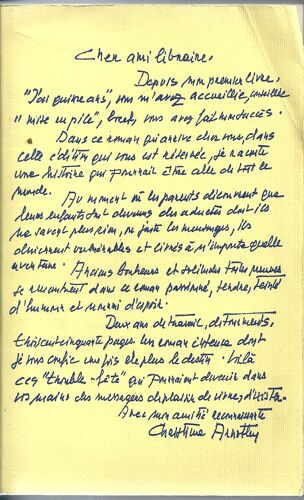 Cher ami libraire,
Depuis mon premier livre,
"J'ai quinze ans", vous m'avez accueillie, conseillée
"mise en pile", bref, vous avez fait mon succès.
Dans ce roman qui arrive chez vous dans
cette édition qui vous est réservée, je raconte
une histoire qui pourrait être celle de tout le
monde.
Au moment où les parents découvrent que
leurs enfants sont devenus des adultes dont ils
ne savent plus rien, ni juste les mensonges, ils
deviennent vulnérables et livrés à n'importe quelle
aventure. Anciens bonheurs et solitudes toutes neuves
se rencontrent dans ce roman passionné, tendre, teinté
d'humour et nourri d'espoir.
Deux ans de travail, de tourments,
trois cent cinquante pages. Un roman existe dont
je vous confie une fois de plus le destin. Voilà
ces "trouble-fête" qui pourraient devenir dans
vos mains des messagers du plaisir de vivre, d'exister.
Avec mon amitié reconnaissante
Christine Arnothy